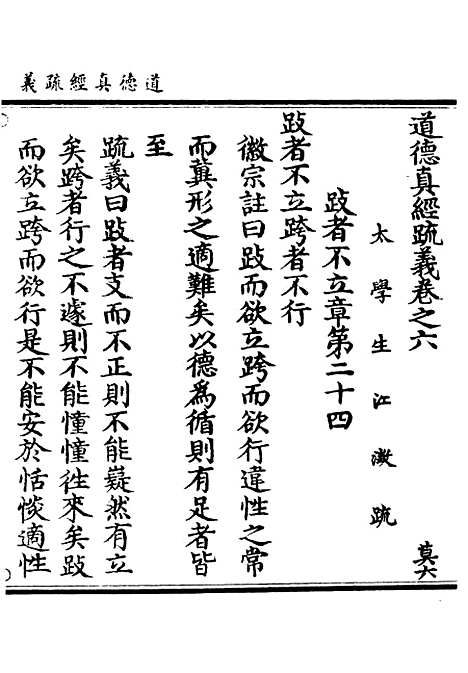 道德真經疏義
道德真經疏義卷之六
莫六
太學生江澂疏
跂者不立章第二十四
跂者不立跨者不行
徽宗註曰跂而欲立跨而欲行違性之常
而冀形之適難矣以德為循則有足者皆
至
疏義曰跂者支而不正則不能嶷然有立
矣跨者行之不遽則不能憧憧徃來矣跂
而欲立跨而欲行是不能安於恬惔適性